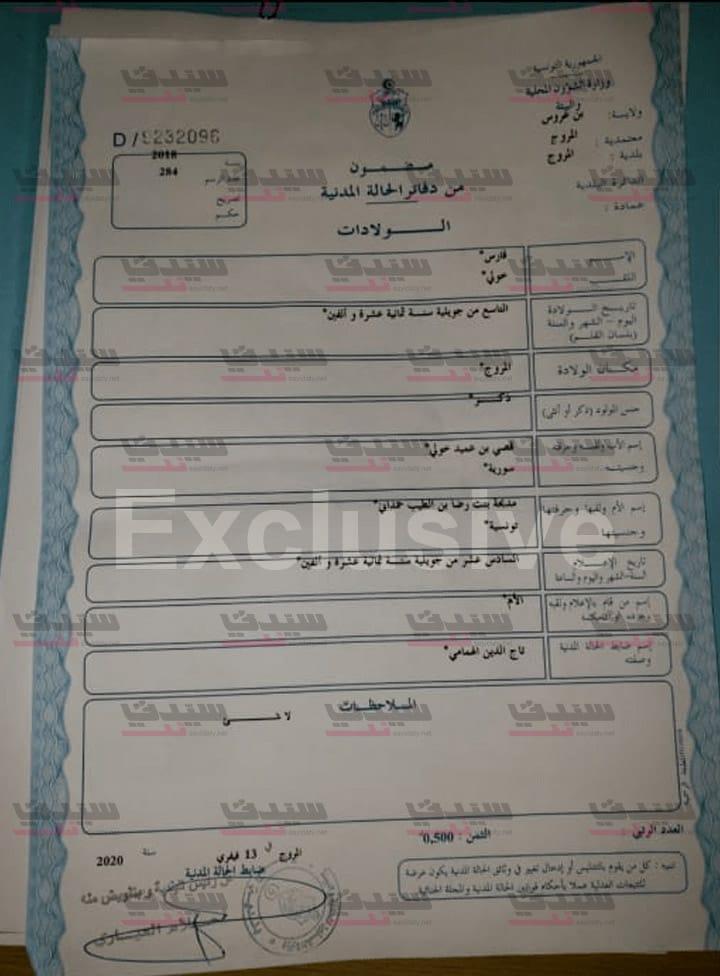 الجمهورية التونسية
وزارة الشؤون المحلية
والبيئة
ولاية: بن عروس
معتمدية : المروج
بلدية : المروج
الدائرة البلدية
عمادة :
D/9232096
سنة 2018
عدد الرسم 284
تصريح
حكم
مضمون
من دفاتر الحالة المدنية
الولادات
الإسم فارس*
اللقب خولي*
تاريخ الولادة
اليوم - الشهر والسنة
(بلسان القلم)
التاسع من جويلية سنة ثمانية عشرة و ألفين*
مكان الولادة المروج*
جنس المولود (ذكر أو أنثى) ذكر*
إسم الأب ولقبه وحرفته قصي بن عميد خولي*
وجنسيته سورية*
إسم الأم ولقبها وحرفتها مديحة بنت رضا بن الطيب حمداني*
وجنسيتها تونسية*
تاريخ الإعلام
السنة-الشهر واليوم والساعة
السادس عشر من جويلية سنة ثمانية عشرة و ألفين*
إسم من قام بالإعلام ولقبه الأم*
إسم ضابط الحالة المدنية
وصفته
تاج الدين الهمامي*
الملاحظات
لا شيء
العدد الرتبي :
الثمن : 0,500
المروج في 13 فيفري سنة 2020
ضابط الحالة المدنية
تنبيه : كل من يقوم بالتدليس أو إدخال تغيير في وثائق الحالة المدنية يكون عرضة
للتتبعات العدلية عملا بأحكام قوانين الحالة المدنية والمجلة الجنائية
Exclusive
سيدتي نت
sayidaty.net